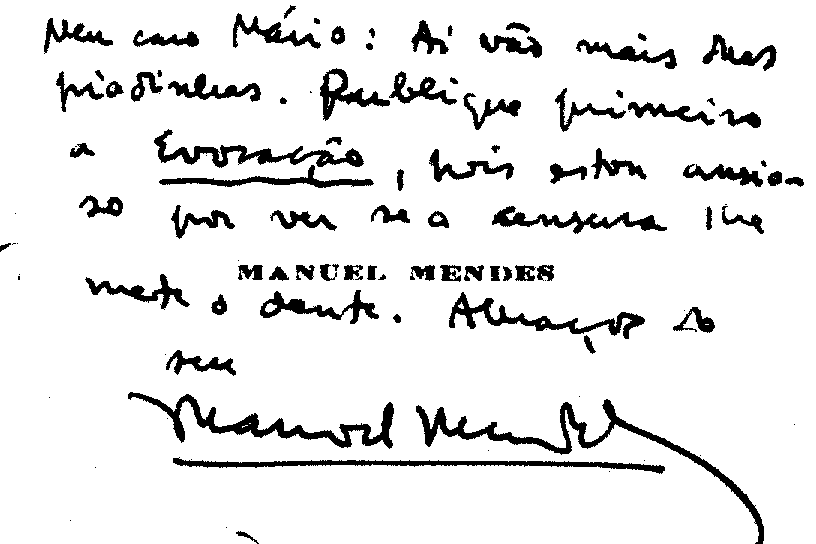 Meu caro Mário: Aí vão mais duas
piadinhas. Publique primeiro
a Evocação, pois estou ansio-
so por ver se a censura lhe
MANUEL MENDES
mete o dente. Abraços do
seu
Manuel Mendes